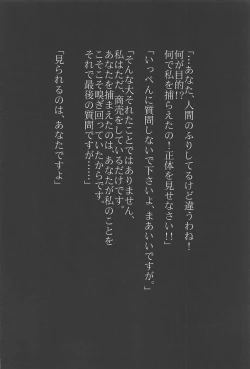 「…あなた、人間のふりしてるけど違うわね!
何が目的!?
何で私を捕らえたの!正体を見せなさい!!」
「いっぺんに質問しないで下さいよ、まあいいですが。」
「そんな大それたことではありません、
私はただ、商売をしているだけです。
あなたを捕まえたのは、あなたが私のことを
こそこそ嗅ぎ回っていたからです。
それで最後の質問ですが……」
「見られるのは、あなたですよ」